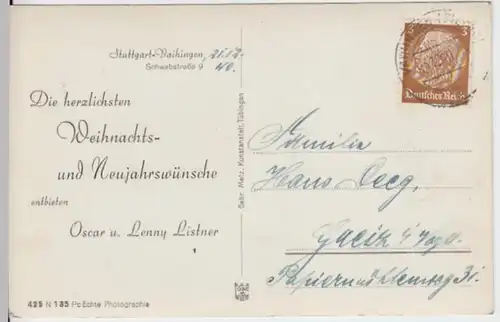 Stuttgart-Vaihingen, 21.12.
Schwabstraße 9 40.
Die herzlichsten
Weihnachts-
und Neujahrswünsche
entbieten
Oscar u. Lenny Listner
425 N 135 Po Echte Photographie
Gebr. Metz, Kunstanstalt, Tübingen
3
Deutsches Reich
Familie
Hans
Greiz i/Vogtl.
Papiermühlenweg 31.